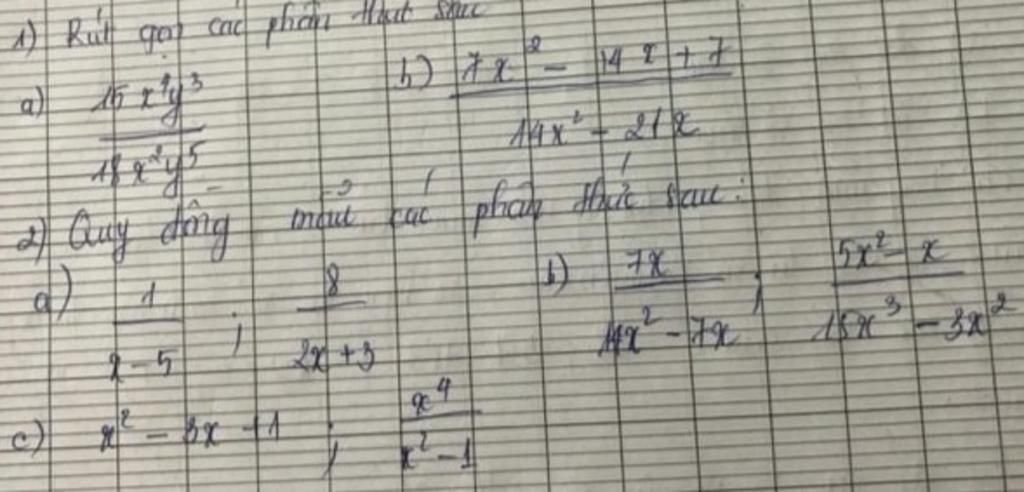 1) Rút gọn các phân thức sau
a) 15x⁴y³ / 18x²y⁵ b) 7x² - 14x + 7 / 14x² - 21x
2) Quy đồng mẫu các phân thức sau:
a) 1 / x - 5 ; 8 / 2x + 3 b) 7x / 14x² - 7x ; 5x² - x / 15x³ - 3x²
c) x² - 3x + 1 ; x⁴ / x² - 1